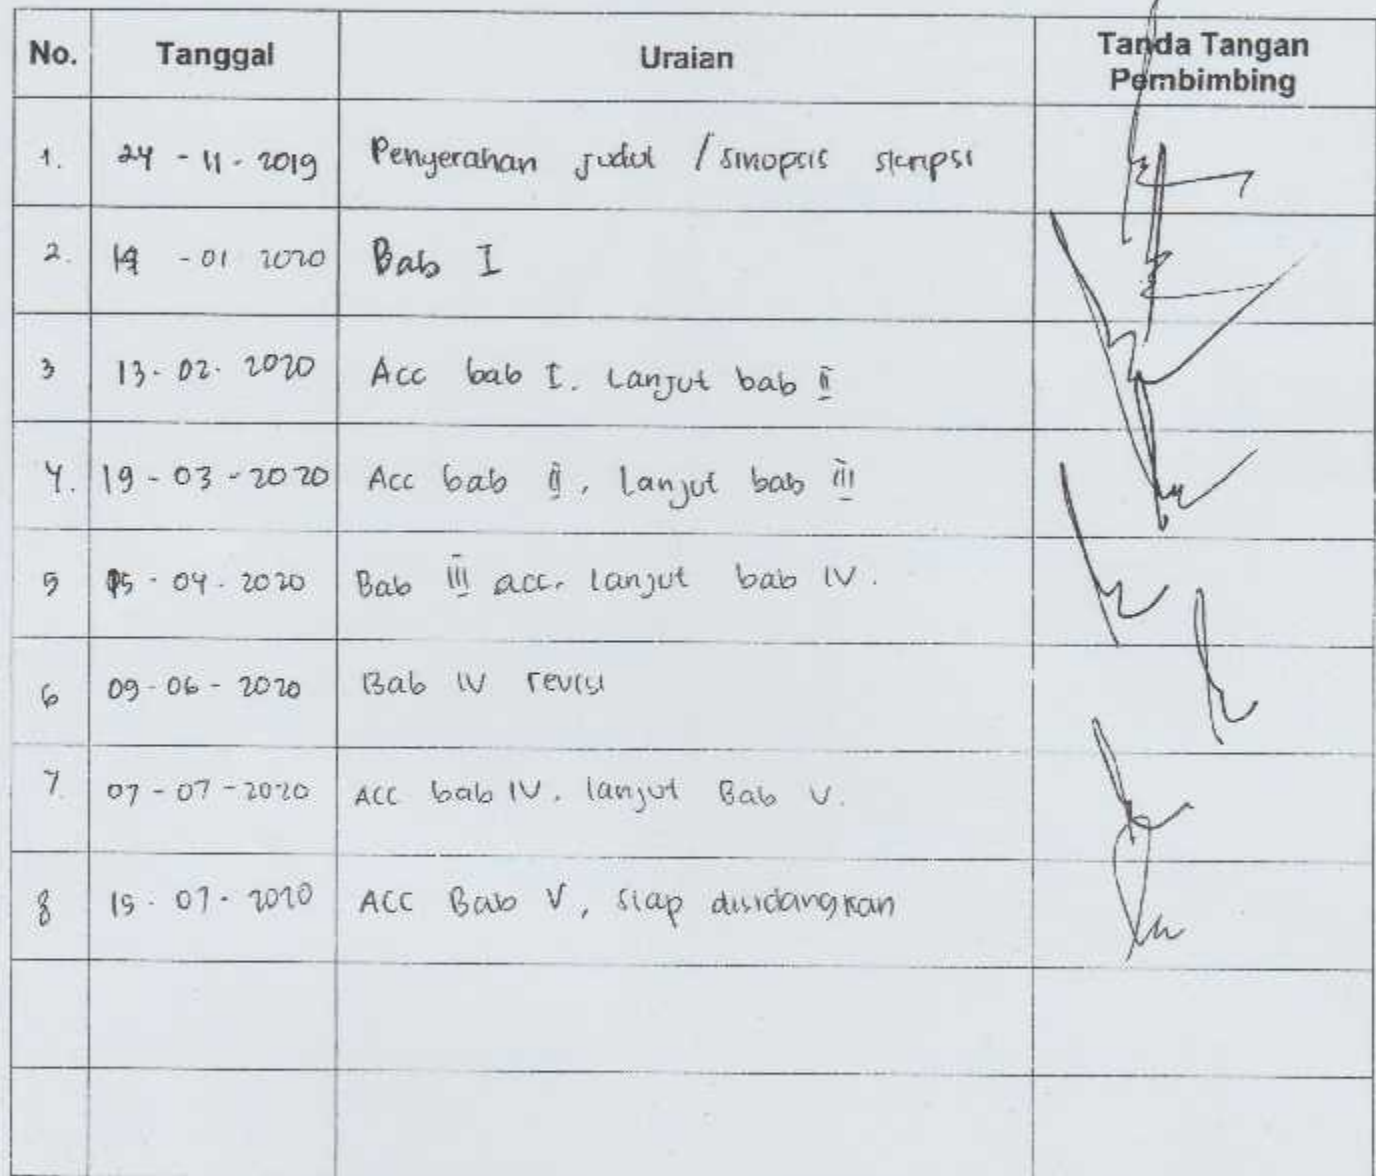 No. Tanggal Uraian Tanda Tangan
Pembimbing
1. 24 - 11 - 2019 Penyerahan judul / sinopsis skripsi
2. -01 2020 Bab I
3 13 - 02 - 2020 Acc bab I. Lanjut bab II
4. 19 - 03 - 2020 Acc bab II, Lanjut bab III
5 05 - 04 - 2020 Bab III acc. lanjut bab IV.
6 09 - 06 - 2020 Bab IV revisi
7 07 - 07 - 2020 Acc bab IV. lanjut Bab V.
8 15 - 07 - 2020 ACC Bab V, siap disidangkan